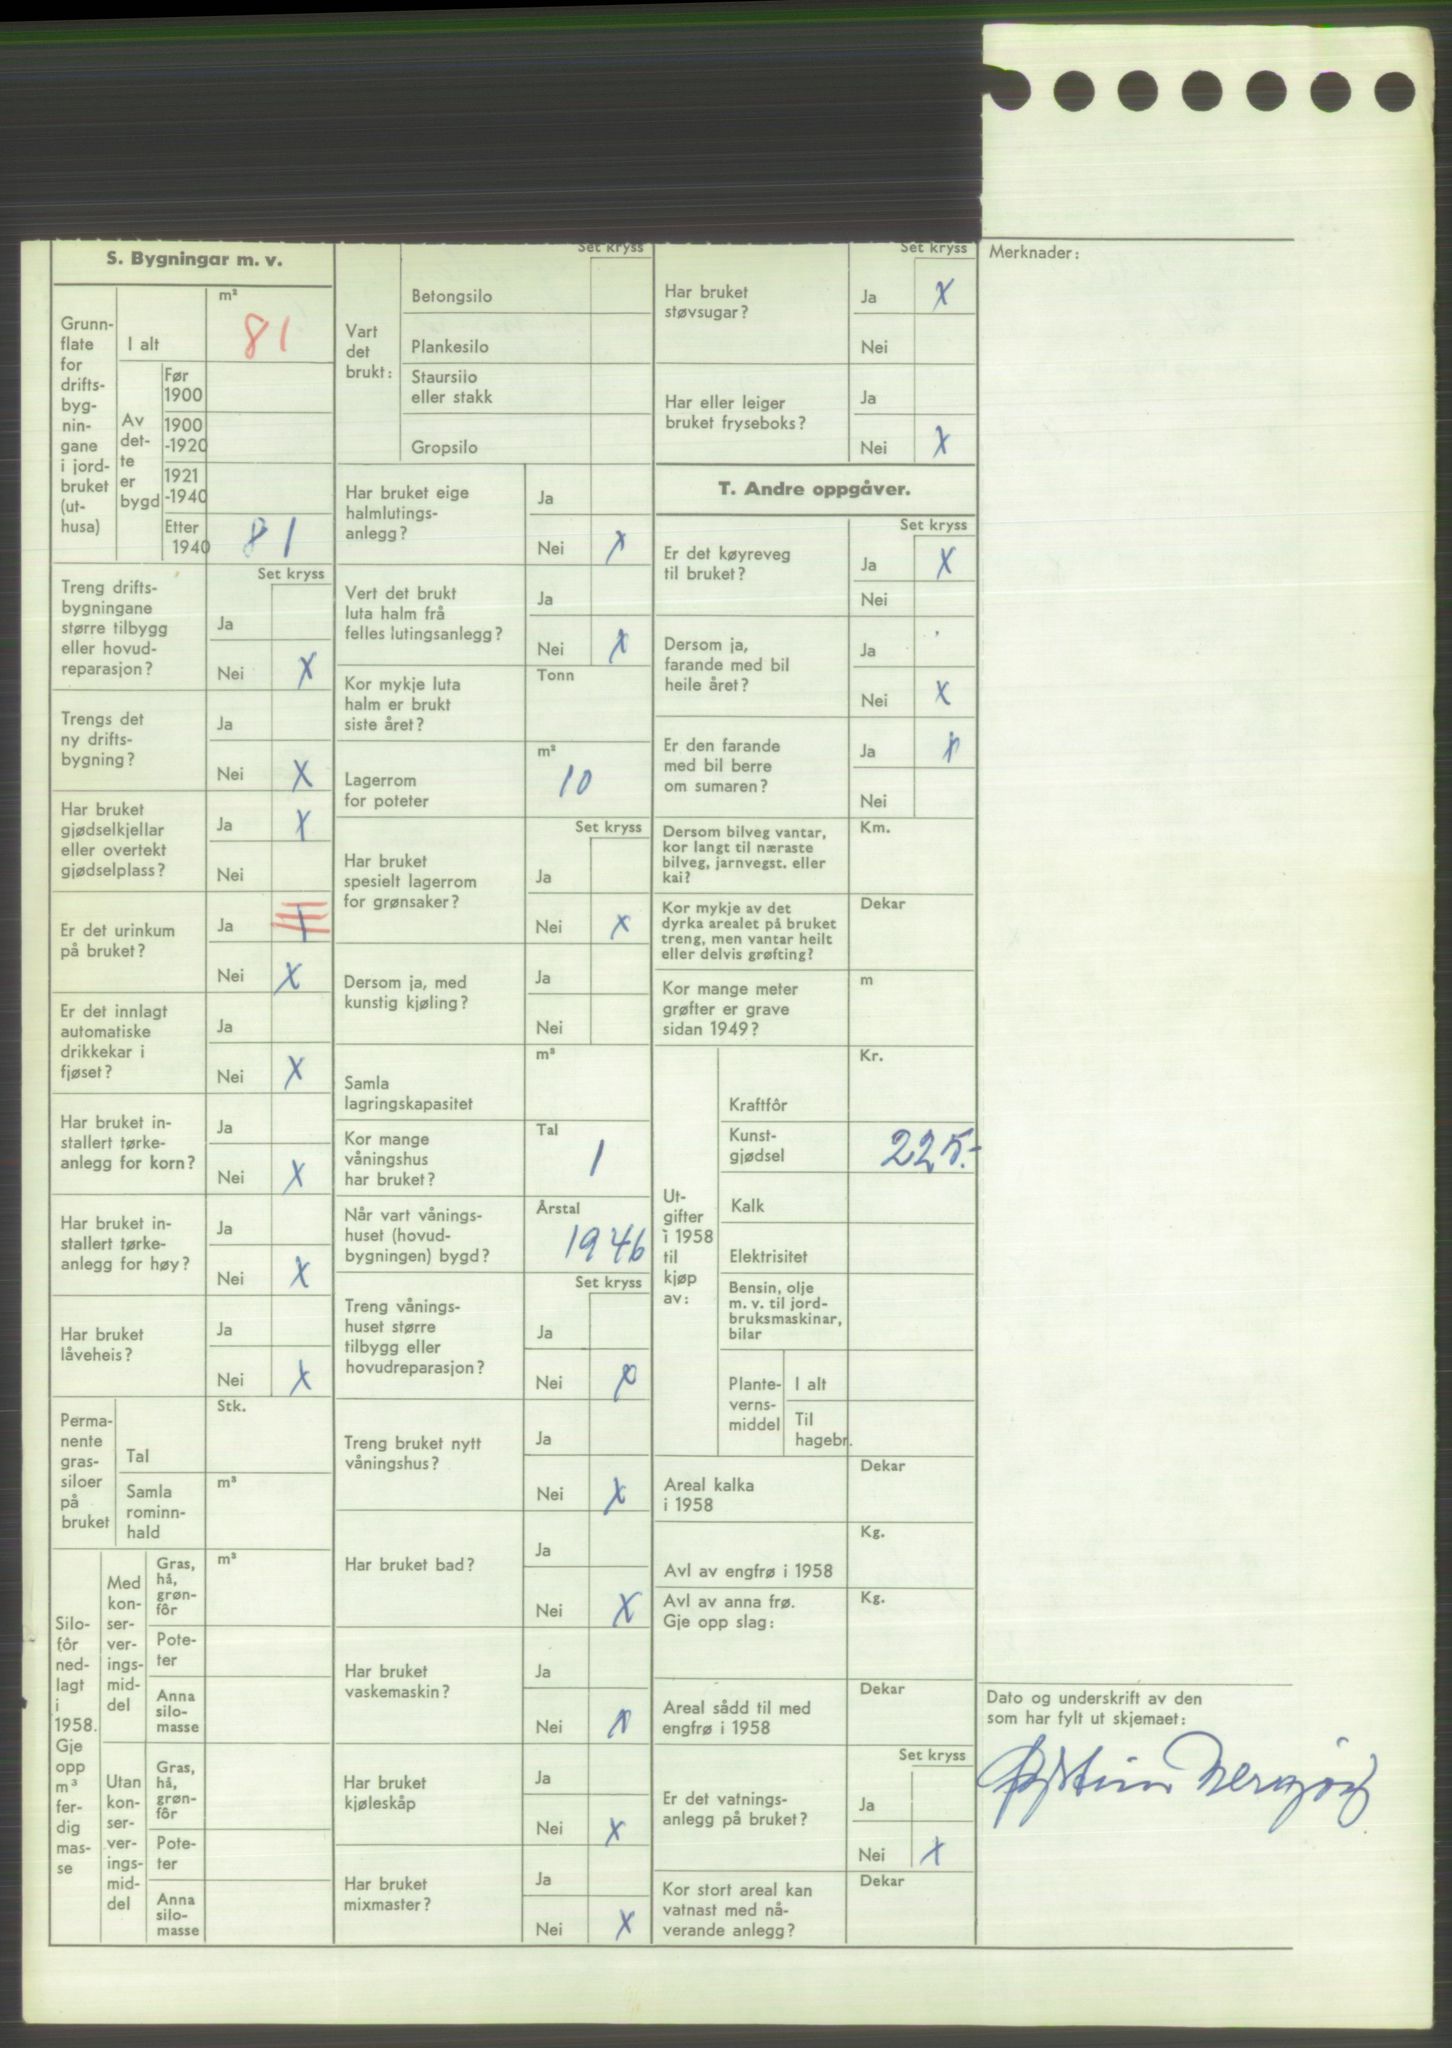 S. Bygningar m. v.
Grunn-
flate
for
drifts-
byg-
nin-
gane
i jord-
bruket
(ut-
husa)
I alt
m²
81
Av
det-
te
er
bygd
Før
1900
1900
-1920
1921
-1940
Etter
1940
81
Set kryss
Treng drifts-
bygningane
større tilbygg
eller hovud-
reparasjon?
Ja
Nei X
Trengs det
ny drifts-
bygning?
Ja
Nei X
Har bruket
gjødselkjellar
eller overtekt
gjødselplass?
Ja X
Nei
Er det urinkum
på bruket?
Ja
Nei X
Er det innlagt
automatiske
drikkekar i
fjøset?
Ja
Nei X
Har bruket in-
stallert tørke-
anlegg for korn?
Ja
Nei X
Har bruket in-
stallert tørke-
anlegg for høy?
Ja
Nei X
Har bruket
låveheis?
Ja
Nei X
Perma-
nente
gras-
siloer
på
bruket
Tal
Stk.
Samla
rominn-
hald
m³
Silo-
fôr
ned-
lagt
i
1958.
Gje
opp
m³
fer-
dig
mas-
se
Med
kon-
ser-
ver-
ings-
mid-
del
Gras,
hå,
grøn-
fôr
m³
Pote-
ter
Anna
silo-
masse
Utan
kon-
ser-
ver-
ings-
mid-
del
Gras,
hå,
grøn-
fôr
Pote-
ter
Anna
silo-
masse
Set kryss
Vart
det
brukt:
Betongsilo
Plankesilo
Staursilo
eller stakk
Gropsilo
Har bruket eige
halmlutings-
anlegg?
Ja
Nei X
Vert det brukt
luta halm frå
felles lutingsanlegg?
Ja
Nei X
Kor mykje luta
halm er brukt
siste året?
Tonn
Lagerrom
for poteter
m²
10
Set kryss
Har bruket
spesielt lagerrom
for grønsaker?
Ja
Nei X
Dersom ja, med
kunstig kjøling?
Ja
Nei
Samla
lagringskapasitet
m³
Kor mange
våningshus
har bruket?
Tal
1
Når vart vånings-
huset (hovud-
bygningen) bygd?
Årstal
1946
Set kryss
Treng vånings-
huset større
tilbygg eller
hovudreparasjon?
Ja
Nei X
Treng bruket nytt
våningshus?
Ja
Nei X
Har bruket bad?
Ja
Nei X
Har bruket
vaskemaskin?
Ja
Nei X
Har bruket
kjøleskåp
Ja
Nei X
Har bruket
mixmaster?
Ja
Nei X
Set kryss
Har bruket
støvsugar?
Ja X
Nei
Har eller leiger
bruket fryseboks?
Ja
Nei X
T. Andre oppgåver.
Set kryss
Er det køyreveg
til bruket?
Ja X
Nei
Dersom ja,
farande med bil
heile året?
Ja
Nei X
Er den farande
med bil berre
om sumaren?
Ja X
Nei
Dersom bilveg vantar,
kor langt til næraste
bilveg, jarnvegst. eller
kai?
Km.
Kor mykje av det
dyrka arealet på bruket
treng, men vantar heilt
eller delvis grøfting?
Dekar
Kor mange meter
grøfter er grave
sidan 1949?
m
Ut-
gifter
i 1958
til
kjøp
av:
Kr.
Kraftfôr
Kunst-
gjødsel
225.-
Kalk
Elektrisitet
Bensin, olje
m. v. til jord-
bruksmaskinar,
bilar
Plante-
verns-
middel
I alt
Til
hagebr.
Areal kalka
i 1958
Dekar
Avl av engfrø i 1958
Kg.
Avl av anna frø.
Gje opp slag:
Kg.
Areal sådd til med
engfrø i 1958
Dekar
Set kryss
Er det vatnings-
anlegg på bruket?
Ja
Nei X
Kor stort areal kan
vatnast med nå-
verande anlegg?
Dekar
Merknader:
Dato og underskrift av den
som har fylt ut skjemaet: